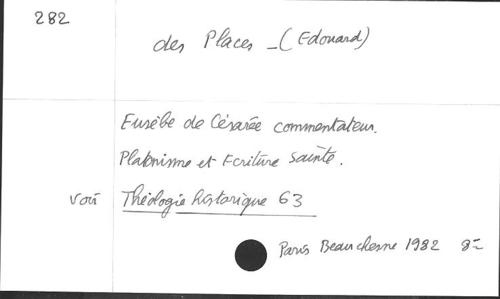 282
des Places - (Edouard)
Eusèbe de Césarée commentateur.
Platonisme et Ecriture Sainte.
voir Théologie historique 63
Paris Beauchesne 1982 8°